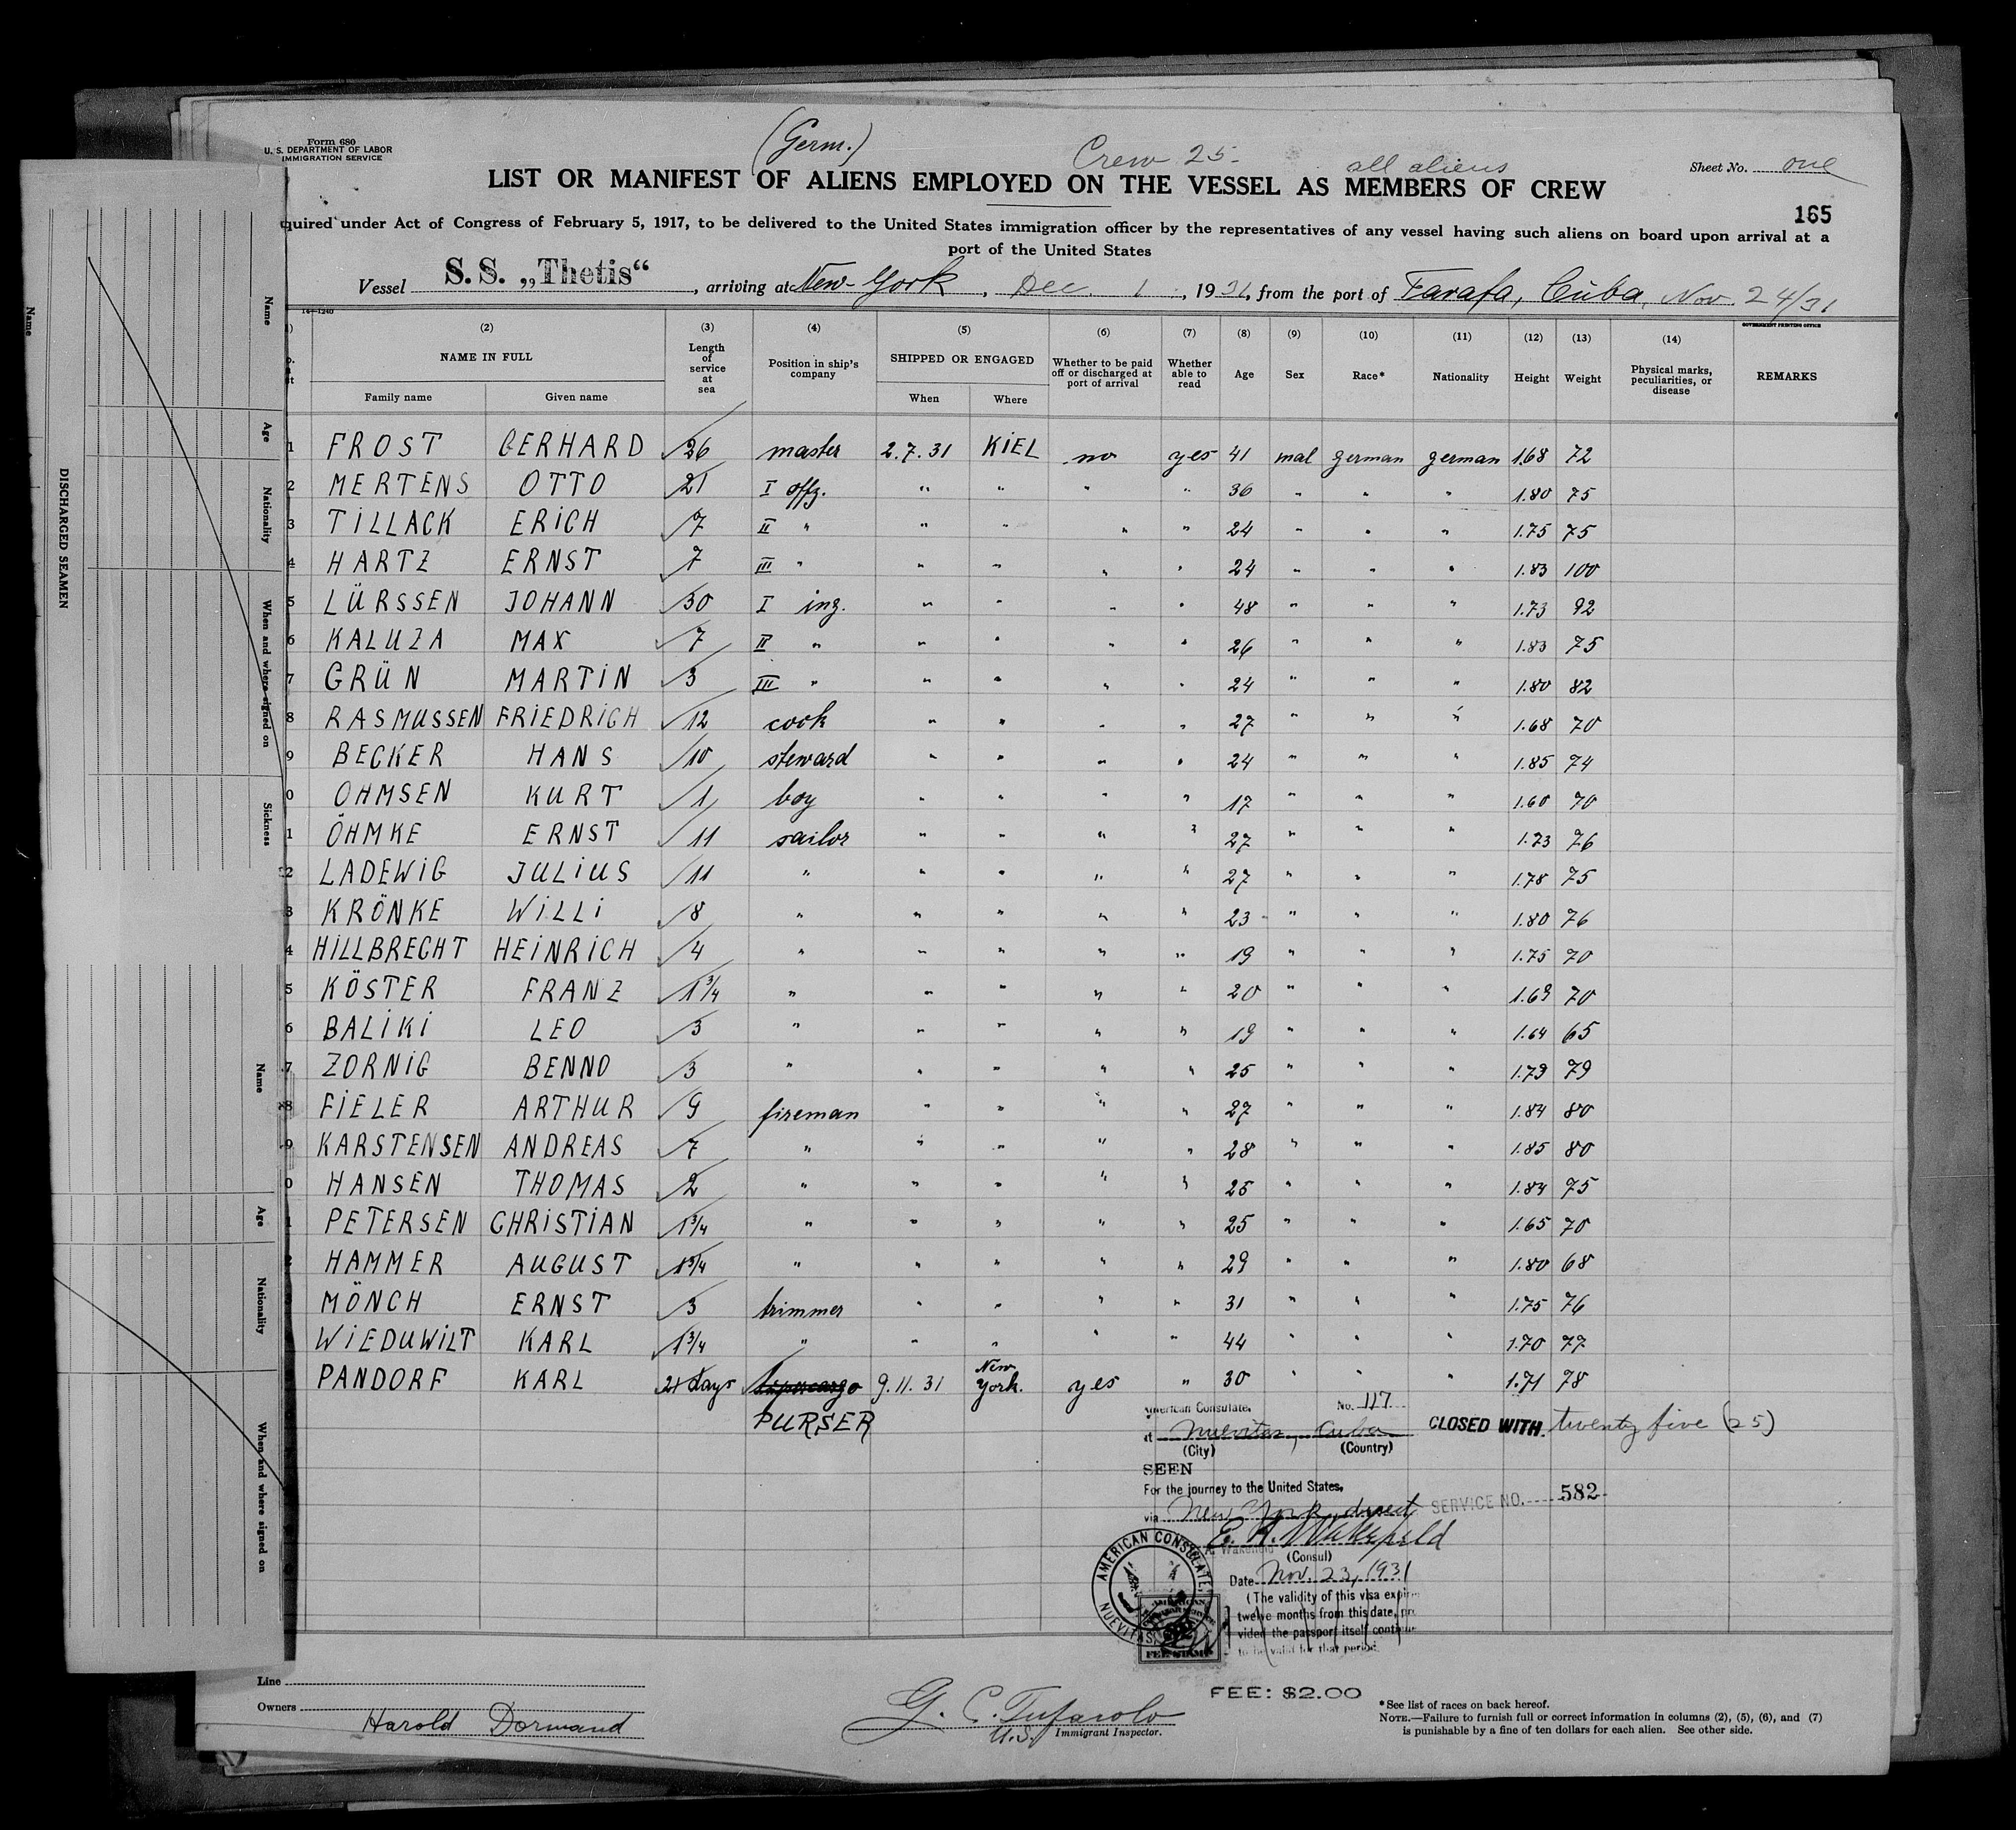 Form 680
U. S. DEPARTMENT OF LABOR
IMMIGRATION SERVICE
(Germ.)
Crew 25-
all aliens
Sheet No. one
LIST OR MANIFEST OF ALIENS EMPLOYED ON THE VESSEL AS MEMBERS OF CREW
165
quired under Act of Congress of February 5, 1917, to be delivered to the United States immigration officer by the representatives of any vessel having such aliens on board upon arrival at a
port of the United States
Vessel S. S. „Thetis“, arriving at New-York, Dec. 1, 1931, from the port of Tarafa, Cuba, Nov. 24/31
14—1240
GOVERNMENT PRINTING OFFICE
(2) (3) (4) (5) (6) (7) (8) (9) (10) (11) (12) (13) (14)
NAME IN FULL Length of service at sea Position in ship's company SHIPPED OR ENGAGED Whether to be paid off or discharged at port of arrival Whether able to read Age Sex Race* Nationality Height Weight Physical marks, peculiarities, or disease REMARKS
Family name Given name When Where
1 FROST GERHARD 26 master 2.7.31 KIEL no yes 41 mal german german 1.68 72
2 MERTENS OTTO 21 I offz. " " " " 36 " " " 1.80 75
3 TILLACK ERICH 7 II " " " " " 24 " " " 1.75 75
4 HARTZ ERNST 7 III " " " " " 24 " " " 1.83 100
5 LÜRSSEN JOHANN 30 I ing. " " " " 48 " " " 1.73 92
6 KALUZA MAX 7 II " " " " " 26 " " " 1.83 75
7 GRÜN MARTIN 3 III " " " " " 24 " " " 1.80 82
8 RASMUSSEN FRIEDRICH 12 cook " " " " 27 " " " 1.68 70
9 BECKER HANS 10 steward " " " " 24 " " " 1.85 74
0 OHMSEN KURT 1 boy " " " " 17 " " " 1.60 70
1 ÖHMKE ERNST 11 sailor " " " " 27 " " " 1.73 76
2 LADEWIG JULIUS 11 " " " " " 27 " " " 1.78 75
3 KRÖNKE WILLI 8 " " " " " 23 " " " 1.80 76
4 HILLBRECHT HEINRICH 4 " " " " " 19 " " " 1.75 70
5 KÖSTER FRANZ 1 3/4 " " " " " 20 " " " 1.69 70
6 BALIKI LEO 3 " " " " " 19 " " " 1.64 65
7 ZORNIG BENNO 3 " " " " " 25 " " " 1.79 79
8 FIELER ARTHUR 9 fireman " " " " 27 " " " 1.84 80
9 KARSTENSEN ANDREAS 7 " " " " " 28 " " " 1.85 80
0 HANSEN THOMAS 2 " " " " " " " " 1.84 75
1 PETERSEN CHRISTIAN 1 3/4 " " " " " 25 " " " 1.65 70
2 HAMMER AUGUST 1 3/4 " " " " " 29 " " " 1.80 68
MÖNCH ERNST 3 trimmer " " " " 31 " " " 1.75 76
WIEDUWILT KARL 1 3/4 " " " " " 44 " " " 1.70 77
PANDORF KARL 21 days supercargo 9.11.31 New York. yes " 30 " " " 1.71 78
PURSER
American Consulate,
No. 117
at Nuevitas, Cuba
(City) (Country)
CLOSED WITH twenty five (25)
SEEN
For the journey to the United States,
via New York direct
SERVICE NO. 582
E. A. Wakefield
(Consul)
Date Nov. 23, 1931
(The validity of this visa expires
twelve months from this date, pro
vided the passport itself continue
to be valid for that period.
AMERICAN CONSULATE,
NUEVITAS
FEE STAMP
FEE: $2.00
Line
Owners
Harold Dormand
G. C. Tufarolo
U.S. Immigrant Inspector.
*See list of races on back hereof.
NOTE.—Failure to furnish full or correct information in columns (2), (5), (6), and (7)
is punishable by a fine of ten dollars for each alien. See other side.
DISCHARGED SEAMEN
Name
Name
Age
Nationality
When and where signed on
Sickness
Name
Age
Nationality
When and where signed on